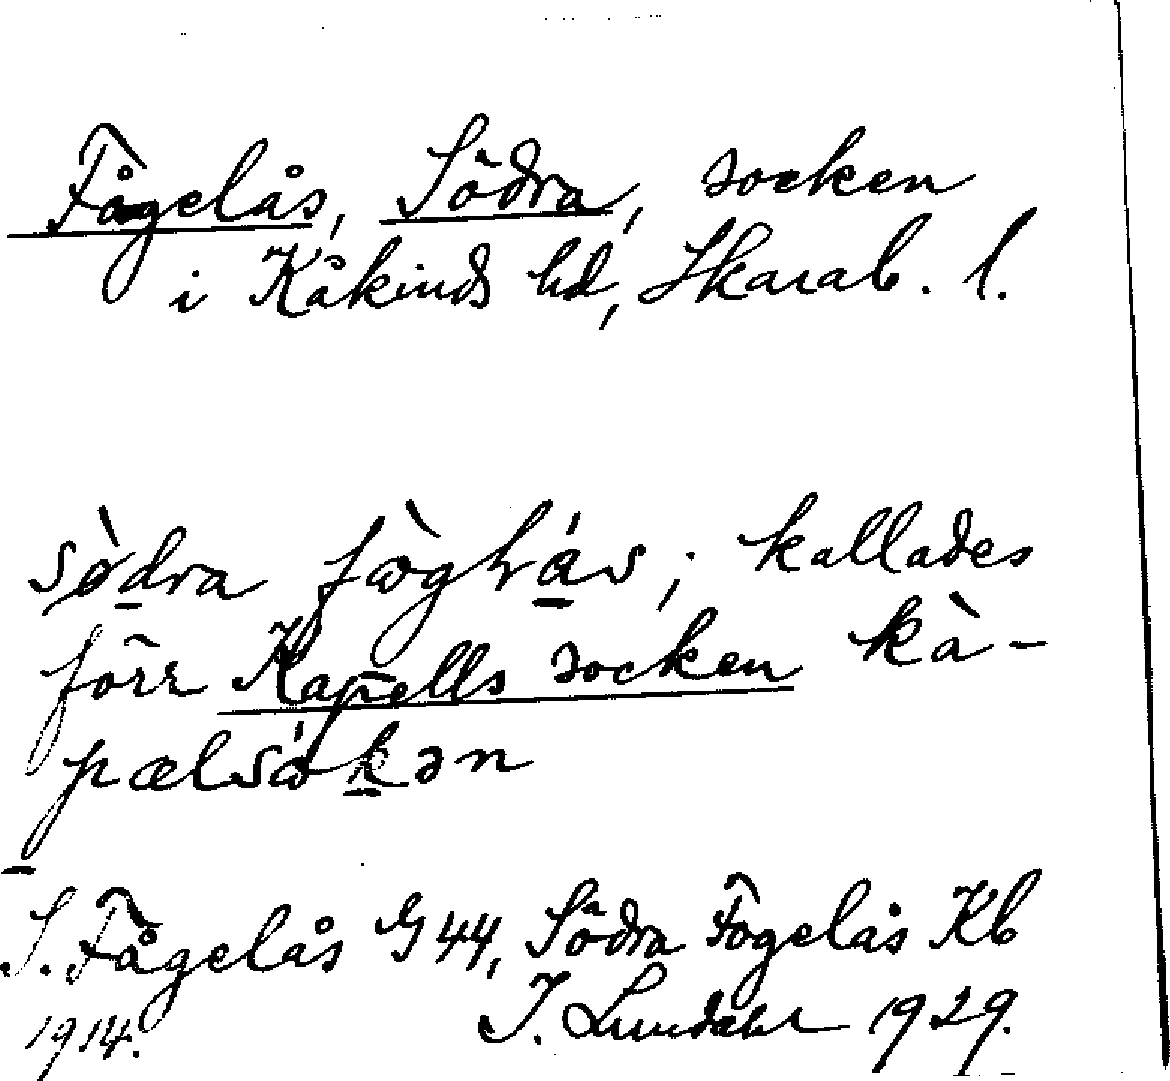 Fågelås, Södra, socken
i Kåkinds hd, Skarab. l.
sø̀dra fòghás; kallades
förr Kapells socken kà-
pælsókən
S. Fågelås G 44, Södra Fogelås Kb
1914. J. Lundahl 1929.